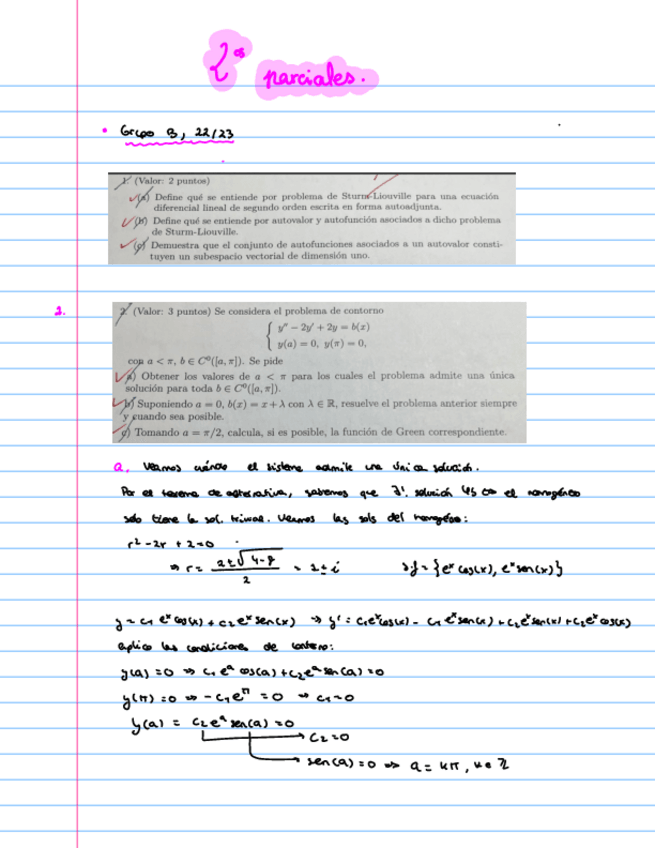 2ºs parciales.
• Grupo B, 22/23
1. (Valor: 2 puntos)
(a) Define qué se entiende por problema de Sturm-Liouville para una ecuación
diferencial lineal de segundo orden escrita en forma autoadjunta.
(b) Define qué se entiende por autovalor y autofunción asociados a dicho problema
de Sturm-Liouville.
(c) Demuestra que el conjunto de autofunciones asociados a un autovalor consti-
tuyen un subespacio vectorial de dimensión uno.
2.
2. (Valor: 3 puntos) Se considera el problema de contorno
y'' − 2y' + 2y = b(x)
y(a) = 0, y(π) = 0,
con a < π, b ∈ C⁰([a, π]). Se pide
a) Obtener los valores de a < π para los cuales el problema admite una única
solución para toda b ∈ C⁰([a, π]).
b) Suponiendo a = 0, b(x) = x + λ con λ ∈ ℝ, resuelve el problema anterior siempre
y cuando sea posible.
c) Tomando a = π/2, calcula, si es posible, la función de Green correspondiente.
a. Veamos cuándo el sistema admite una única solución.
Por el teorema de alternativa, sabemos que ∃! solución ⇔ el homogéneo
solo tiene la sol. trivial. Veamos las sols del homogéneo:
r² - 2r + 2 = 0
⇒ r = (2 ± √(4-8))/2 = 1 ± i   sf = {eˣ cos(x), eˣ sen(x)}
y = c₁ eˣ cos(x) + c₂ eˣ sen(x) ⇒ y' = c₁eˣcos(x) - c₁eˣsen(x) + c₂eˣsen(x) + c₂eˣcos(x)
aplico las condiciones de contorno:
y(a) = 0 ⇒ c₁ eᵃ cos(a) + c₂eᵃ sen(a) = 0
y(π) = 0 ⇒ -c₁e^π = 0 ⇒ c₁ = 0
y(a) = c₂eᵃ sen(a) = 0
→ c₂ = 0
→ sen(a) = 0 ⇒ a = kπ, k ∈ ℤ